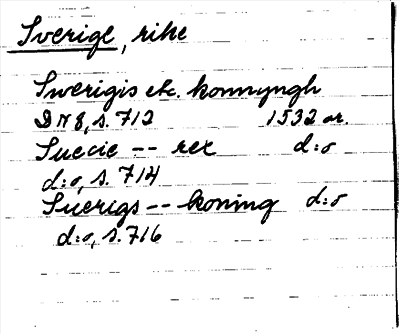 Sverige, rike
Swerigis etc. konnungh
DN 8, s. 712 1532 or.
Suecie -- rex d:o
d:o, s. 714
Suerigs -- koning d:o
d:o, s. 716